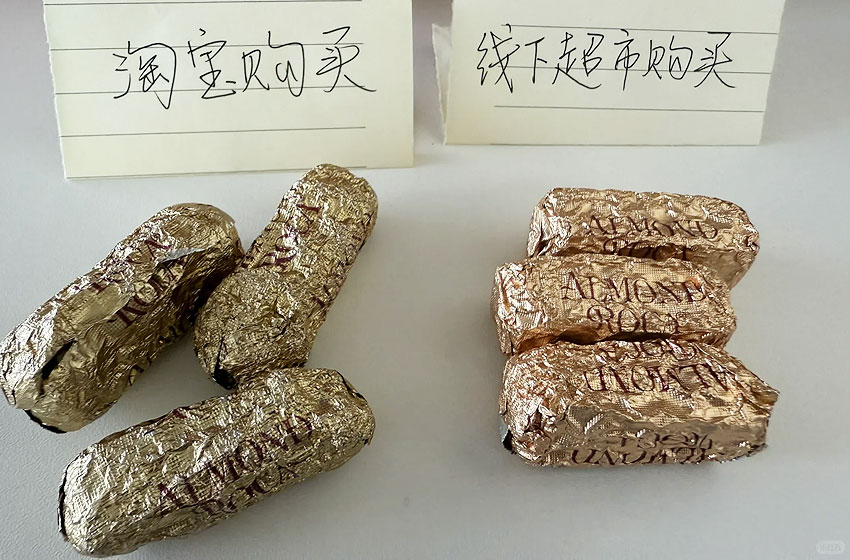 淘宝购买
线下超市购买
ROCA
ROCA
ALMOND
ROCA
ALMOND
ROCA
ALMOND
ROCA
ALMOND
ALMOND